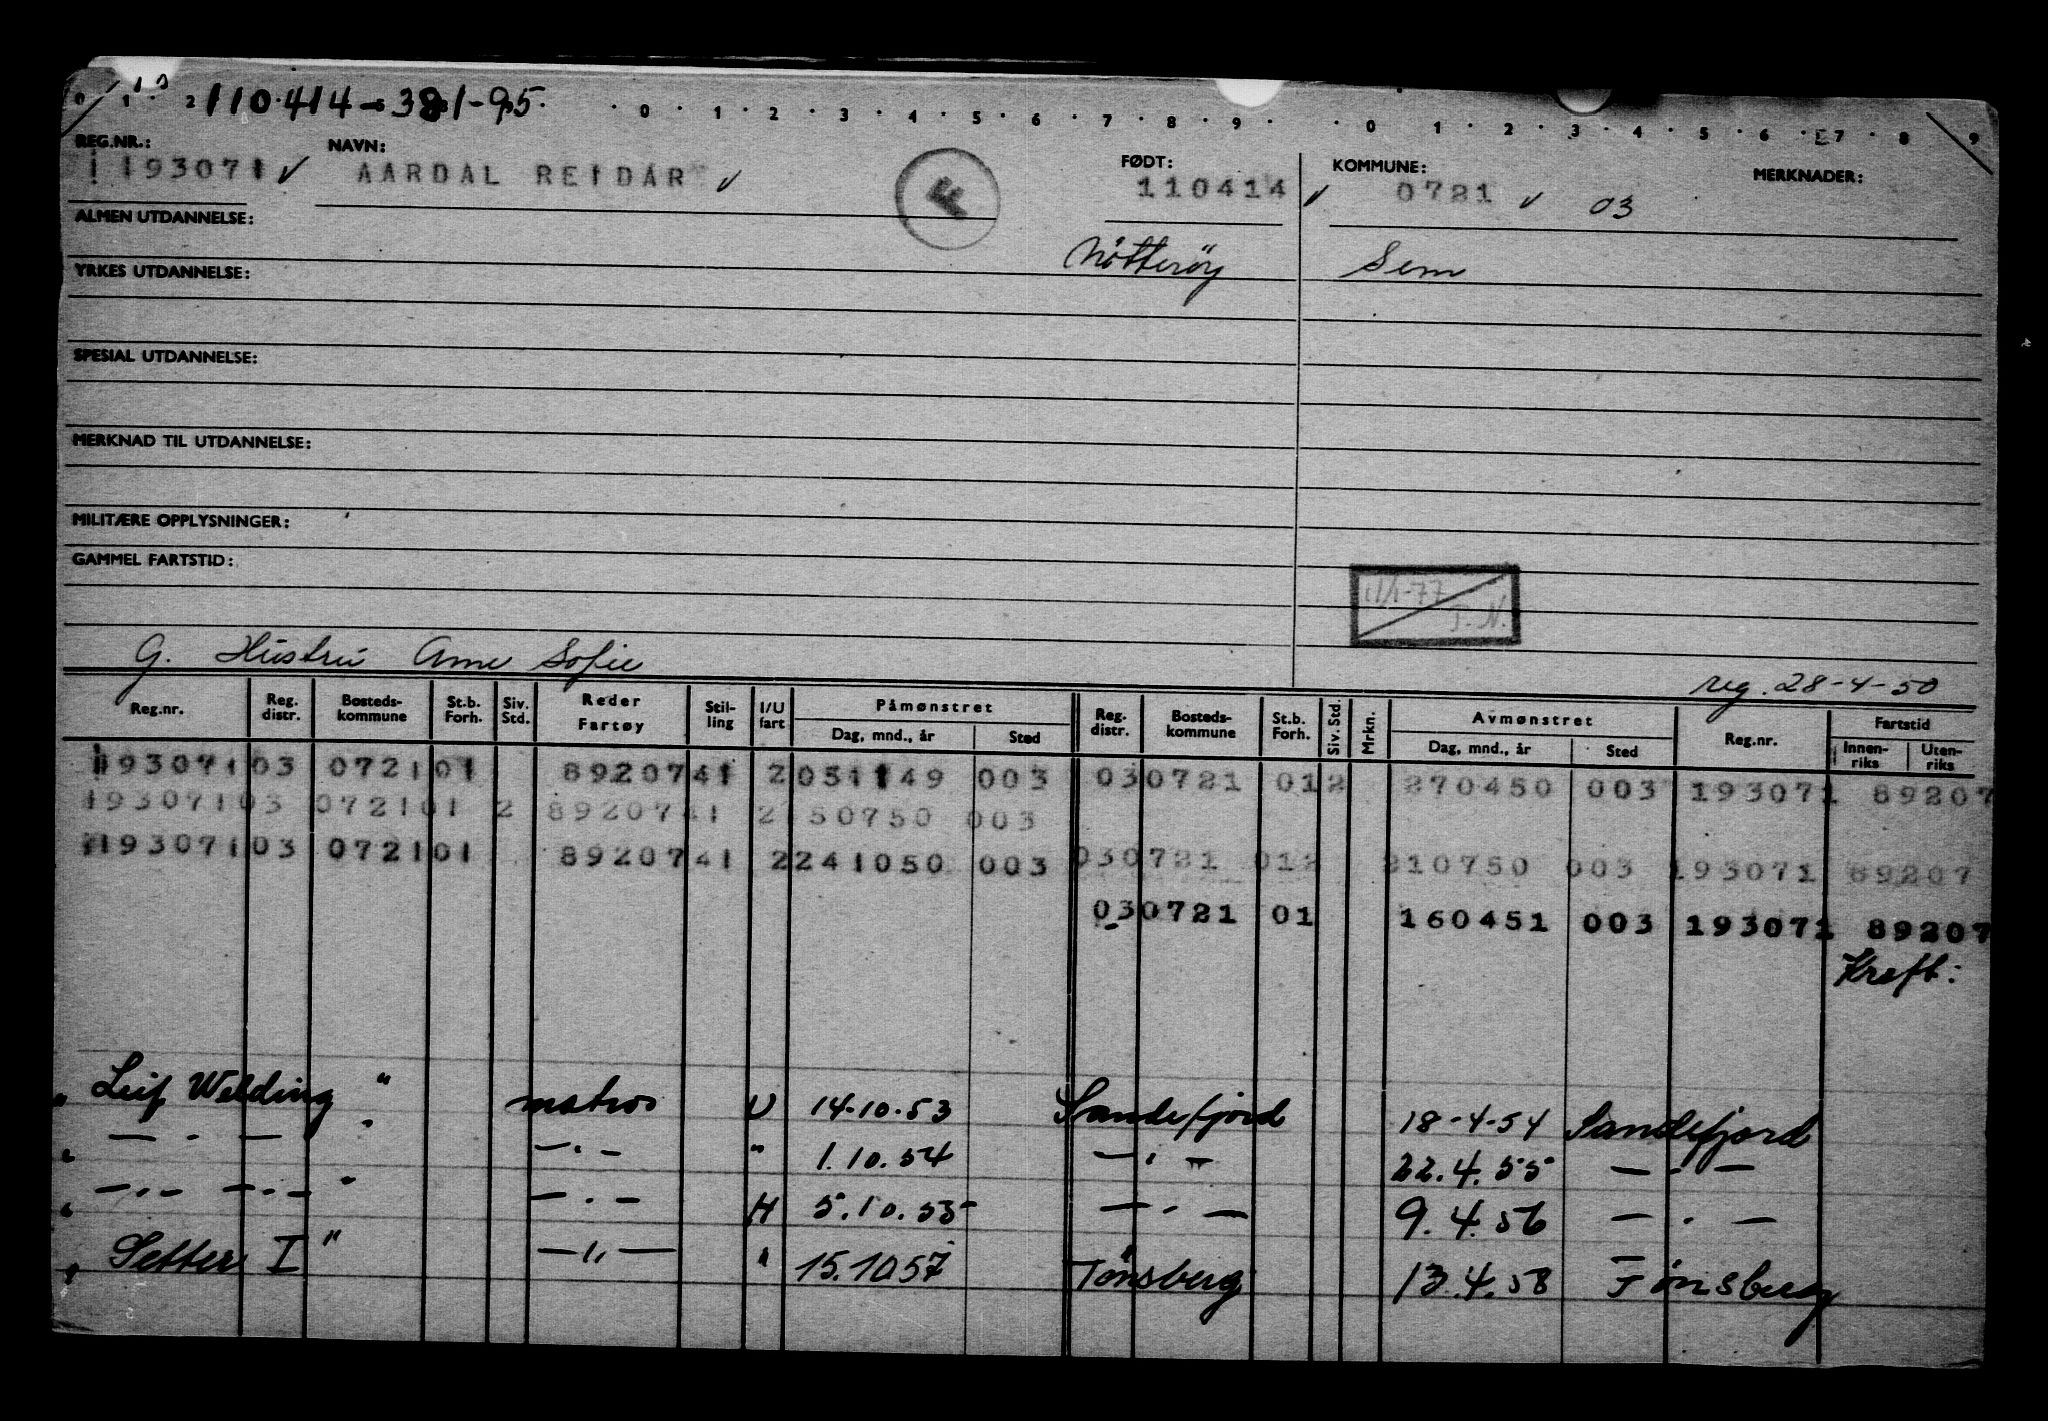 0 1 2 110.414-381-95. 0 1 2 3 4 5 6 7 8 9 0 1 2 3 4 5 6 7 8 9
REG.NR.: NAVN: FØDT: KOMMUNE: MERKNADER:
193071 ✓ AARDAL REIDAR ✓ F 110414 ✓ 0721 ✓ 03
ALMEN UTDANNELSE:
Nøtterøy Sem
YRKES UTDANNELSE:
SPESIAL UTDANNELSE:
MERKNAD TIL UTDANNELSE:
MILITÆRE OPPLYSNINGER:
GAMMEL FARTSTID:
11/1-77
T.N.
G. Hustru Anne Sofie
reg. 28-4-50
Reg.nr. Reg. distr. Bosteds-kommune St.b. Forh. Siv. Std. Reder Fartøy Stil-ling I/U fart Påmønstret Dag, mnd., år Sted Reg. distr. Bosteds-kommune St.b. Forh. Siv. Std. Mrkn. Avmønstret Dag, mnd., år Sted Reg.nr. Fartstid Innen-riks Uten-riks
193071 03 0721 01 89207 41 2 051149 003 03 0721 01 2 270450 003 193071 89207
193071 03 0721 01 2 89207 41 2 150750 003
193071 03 0721 01 89207 41 2 241050 003 03 0721 01 2 210750 003 193071 89207
03 0721 01 160451 003 193071 89207
Kreft:
" Leif Welding " matros U 14.10.53 Sandefjord 18-4-54 Sandefjord
" — " — " — " — " 1.10.54 — " — 22.4.55 — " —
" — " — — " — " — " — H 5.10.55 — " — 9.4.56 — " —
" Setter I " — " — " 15.10.57 Tønsberg 13.4.58 Tønsberg